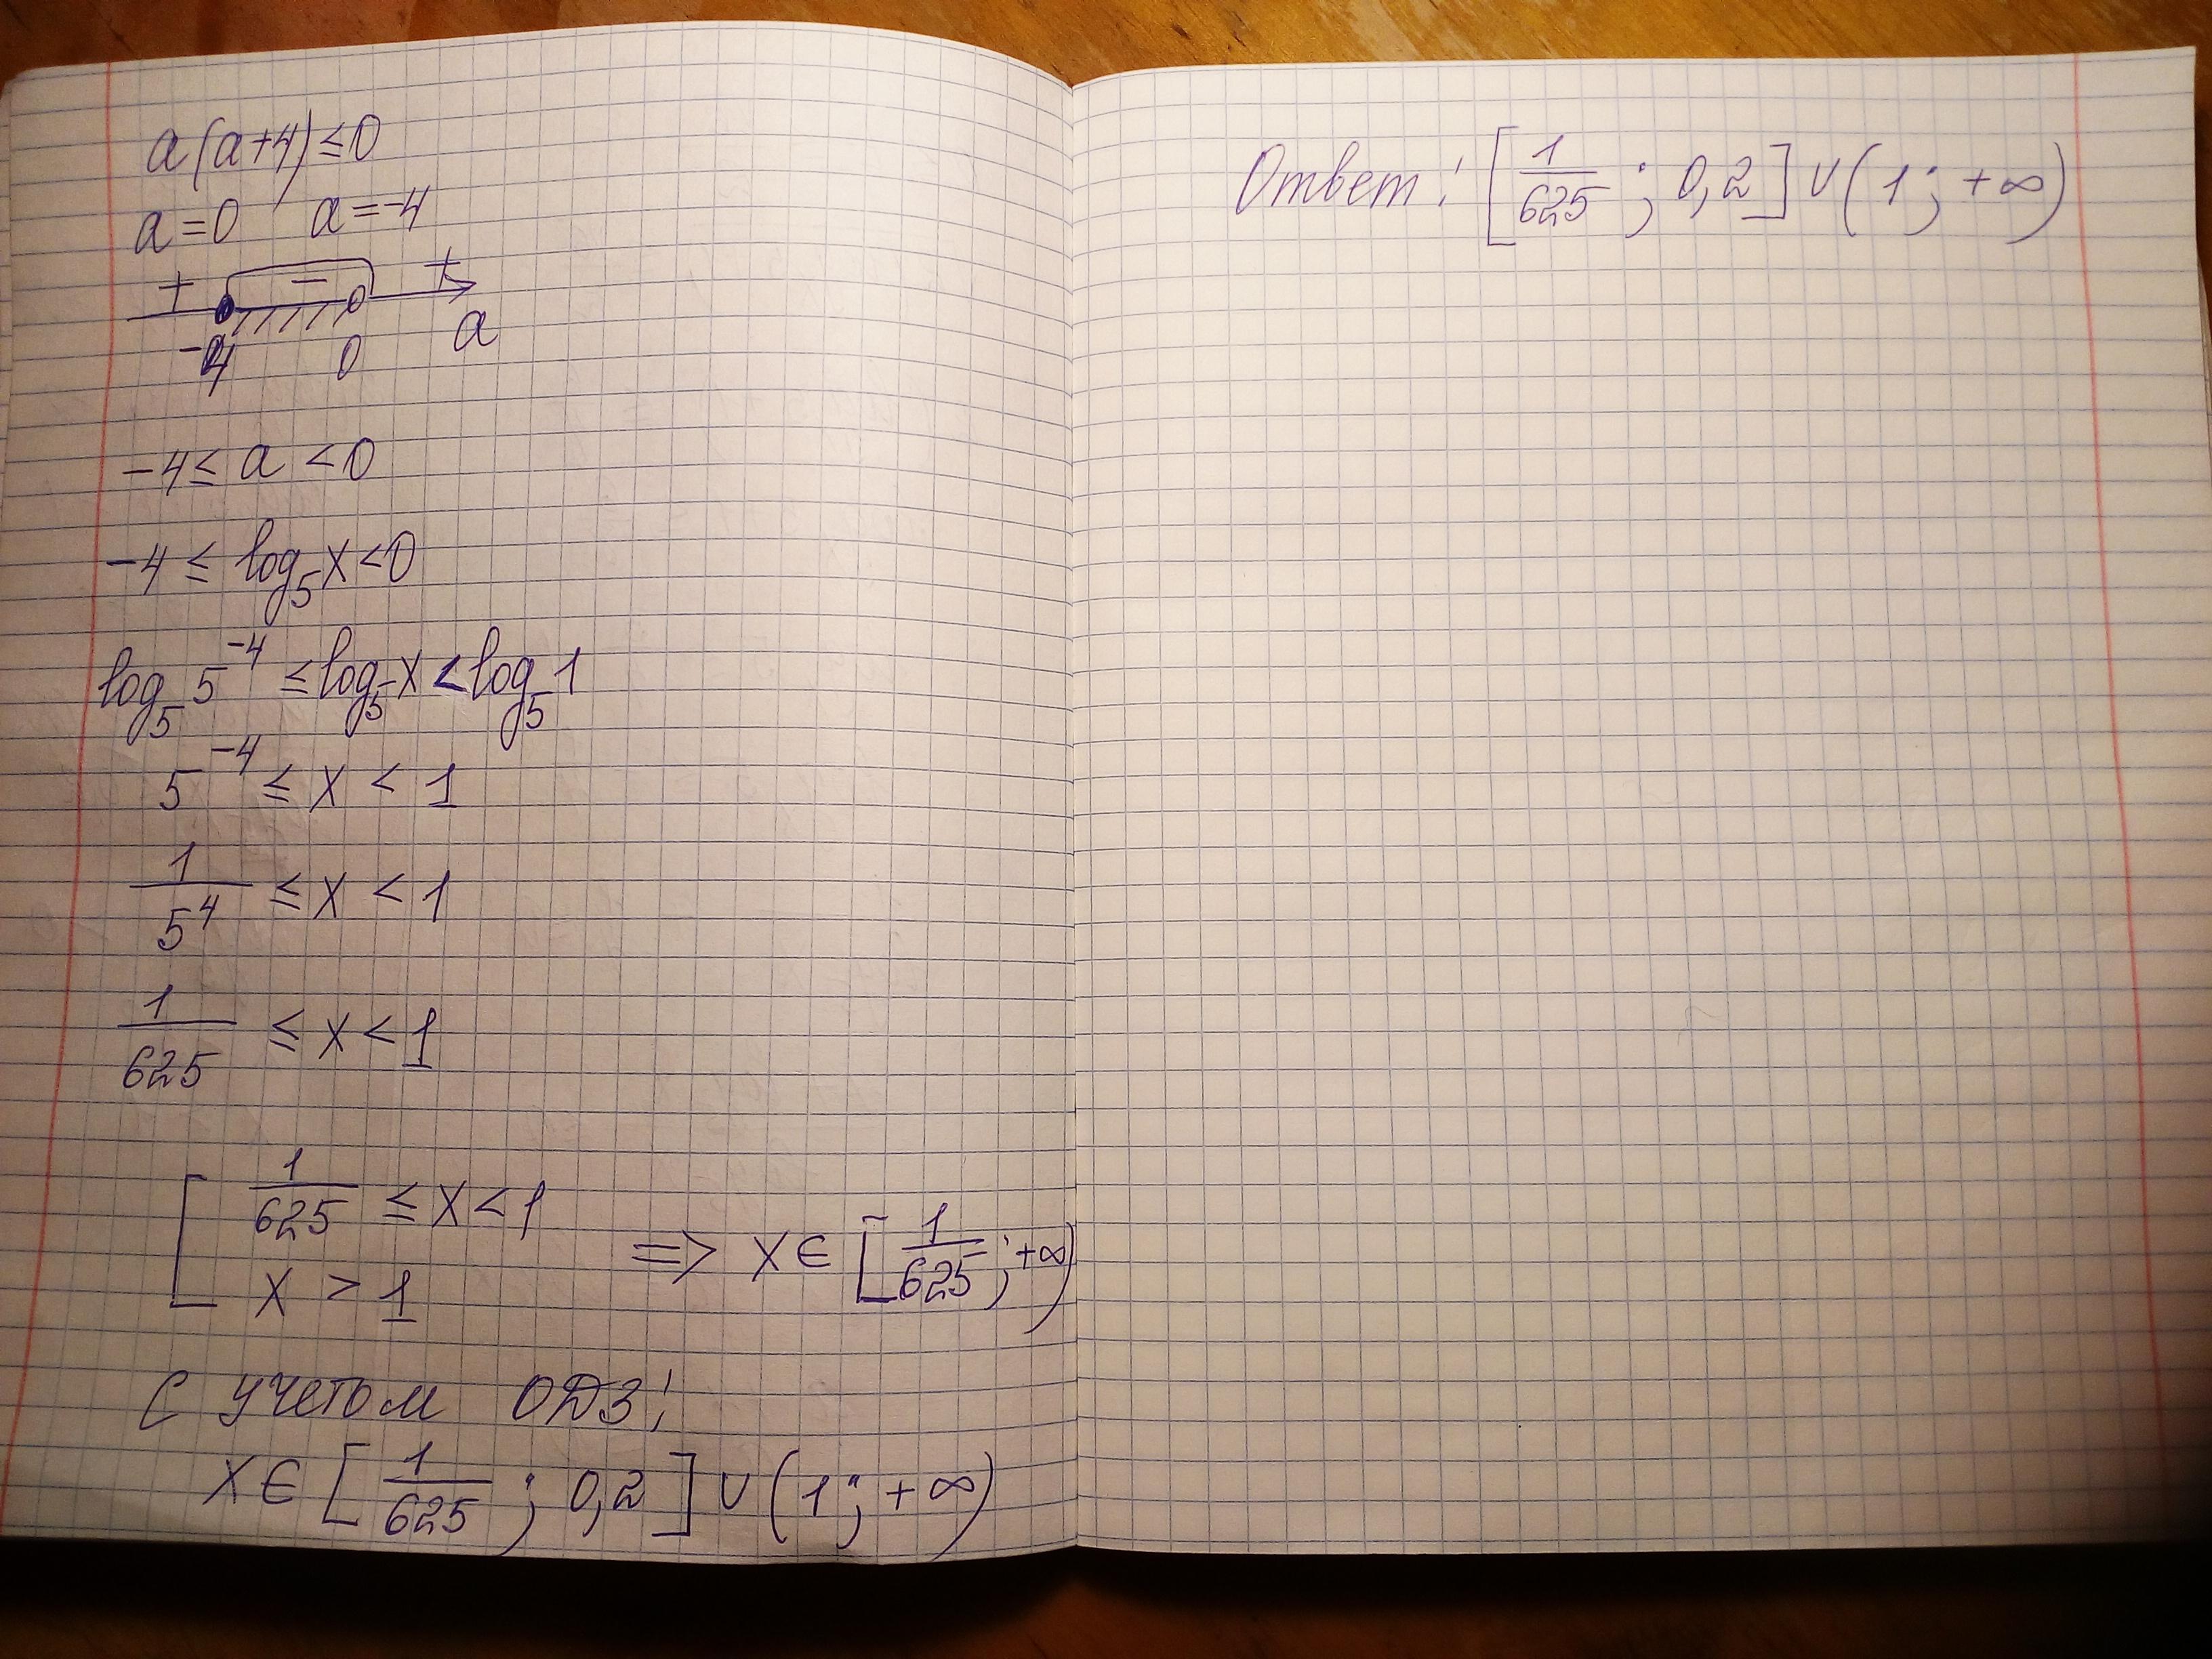 a(a+4)≤0
a=0 a=-4
+ - +
-4 0 a
-4 ≤ a < 0
-4 ≤ log₅x < 0
log₅5⁻⁴ ≤ log₅x < log₅1
5⁻⁴ ≤ x < 1
1/5⁴ ≤ x < 1
1/625 ≤ x < 1
[ 1/625 ≤ x < 1
x > 1 => x ∈ [1/625; +∞)
С учетом ОДЗ:
x ∈ [1/625; 0,2] ∪ (1; +∞)
Ответ: [1/625; 0,2] ∪ (1; +∞)